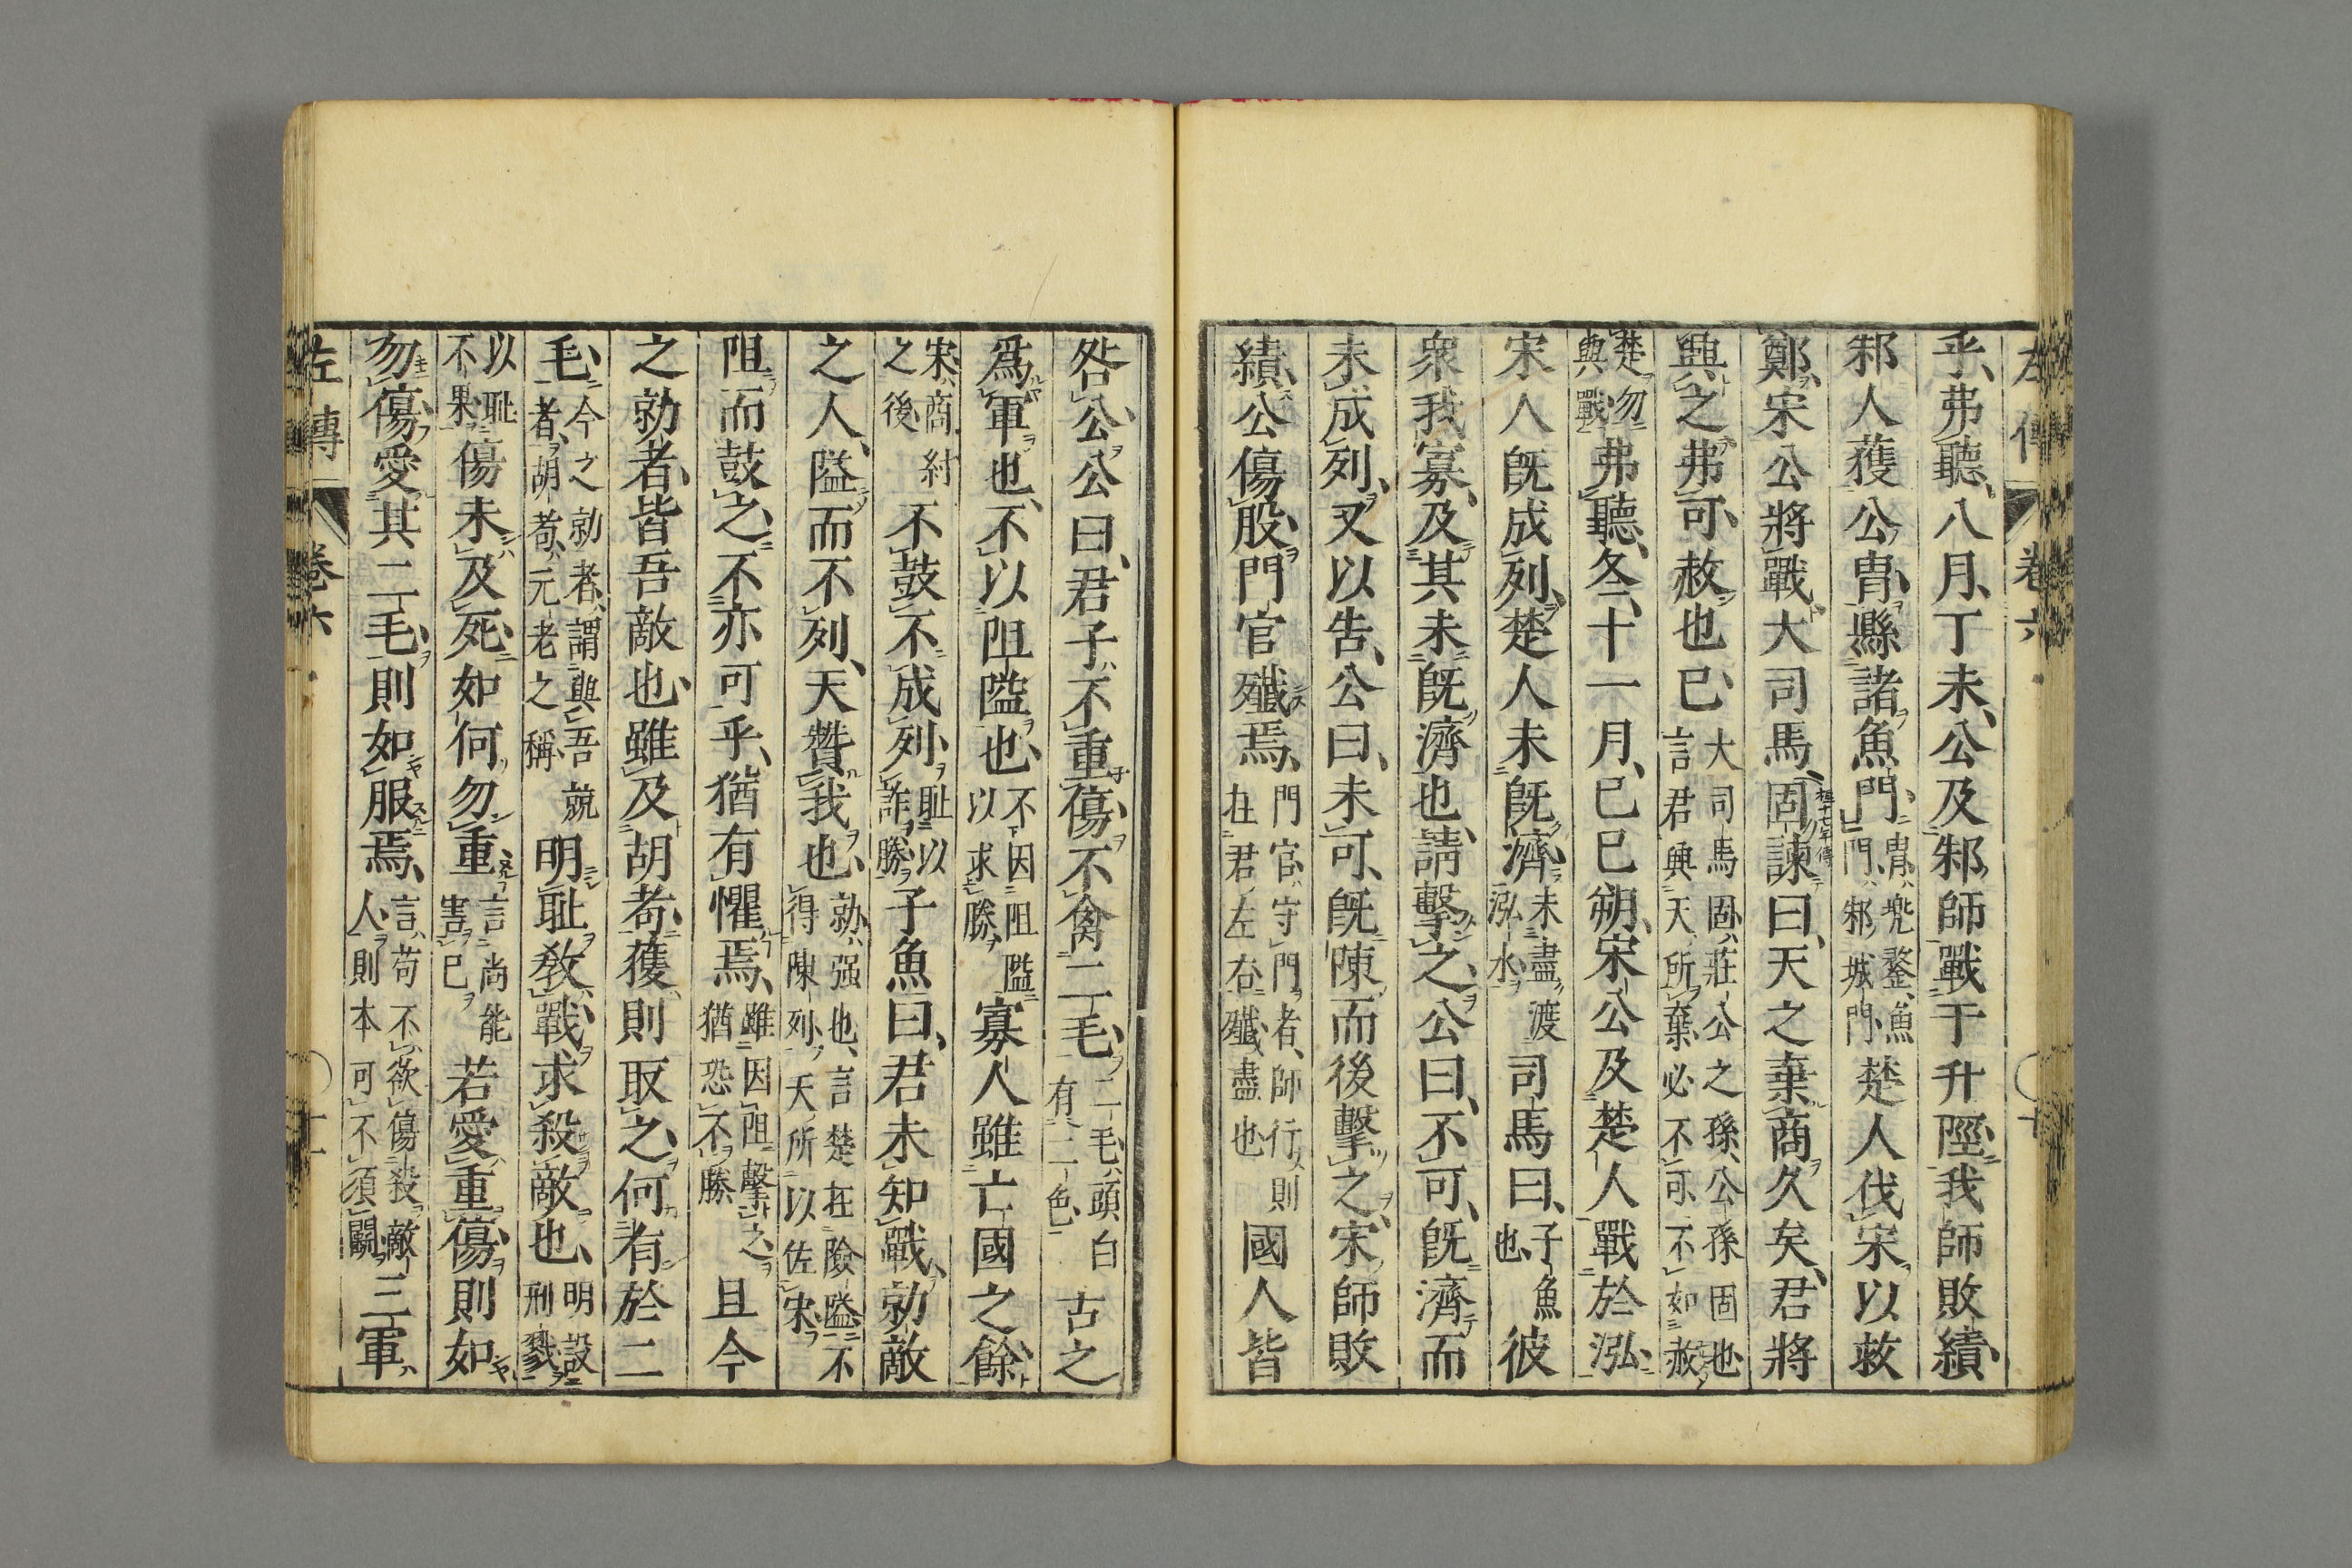 左傳 卷六 十
乎、弗聽、八月、丁未、公及邾師戰于升陘、我師敗績、
邾人獲公冑、縣諸魚門、冑、兜鍪、魚門、邾城門、楚人伐宋以救
鄭、宋公將戰、大司馬固諫曰、天之棄商久矣、君將
興之、弗可、赦也已、大司馬固、莊公之孫、公孫固也、言君興天所棄、必不可、不如赦
楚、勿與戰、弗聽、冬、十一月、己巳朔、宋公及楚人戰於泓、
宋人既成列、楚人未既濟、未盡渡泓水、司馬曰、子魚也、彼
衆我寡、及其未既濟也、請擊之、公曰、不可、既濟而
未成列、又以告、公曰、未可、既陳而後擊之、宋師敗
績、公傷股、門官殲焉、門官、守門者、師行、則在君左右、殲盡也、國人皆
咎公、公曰、君子不重傷、不禽二毛、二毛、頭白有二色、古之
爲軍也、不以阻隘也、不因阻隘以求勝、寡人雖亡國之餘、
宋、商紂之後、不鼓不成列、恥以詐勝、子魚曰、君未知戰、勍敵
之人、隘而不列、天贊我也、勍、强也、言楚在險隘不得陳列、天所以佐宋、
阻而鼓之、不亦可乎、猶有懼焉、雖因阻擊之、猶恐不勝、且今
之勍者、皆吾敵也、雖及胡耇、獲則取之、何有於二
毛、今之勍者、謂與吾競者、胡耇、元老之稱、明恥教戰、求殺敵也、明設刑戮、
以恥不果、傷未及死、如何勿重、言尚能害己、若愛重傷、則如
勿傷、愛其二毛、則如服焉、言苟不欲傷殺敵人、則本可不須鬭、三軍
左傳 卷六 十一